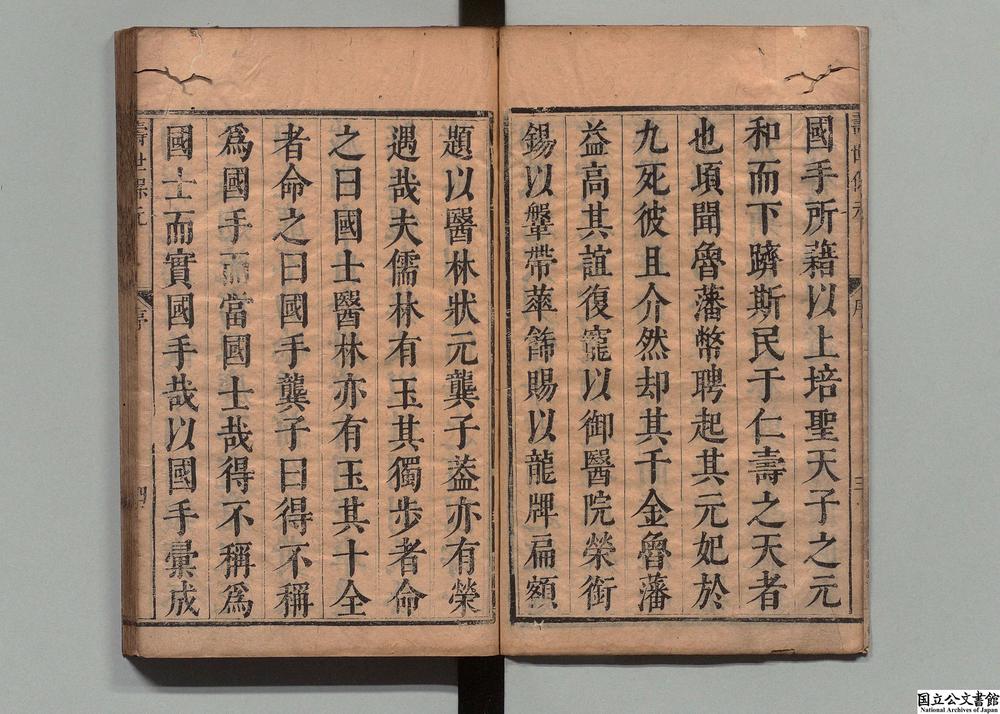 壽世保元
序
三
國手所藉以上培聖天子之元
和而下躋斯民于仁壽之天者
也頃聞魯藩幣聘起其元妃於
九死彼且介然却其千金魯藩
益高其誼復寵以御醫院榮銜
錫以鞶帶華飾賜以龍牌扁額
題以醫林狀元龔子葢亦有榮
遇哉夫儒林有玉其獨步者命
之曰國士醫林亦有玉其十全
者命之曰國手龔子曰得不稱
爲國手而當國士哉得不稱爲
國士而實國手哉以國手彙成
壽世保元
序
四
国立公文書館
National Archives of Japan